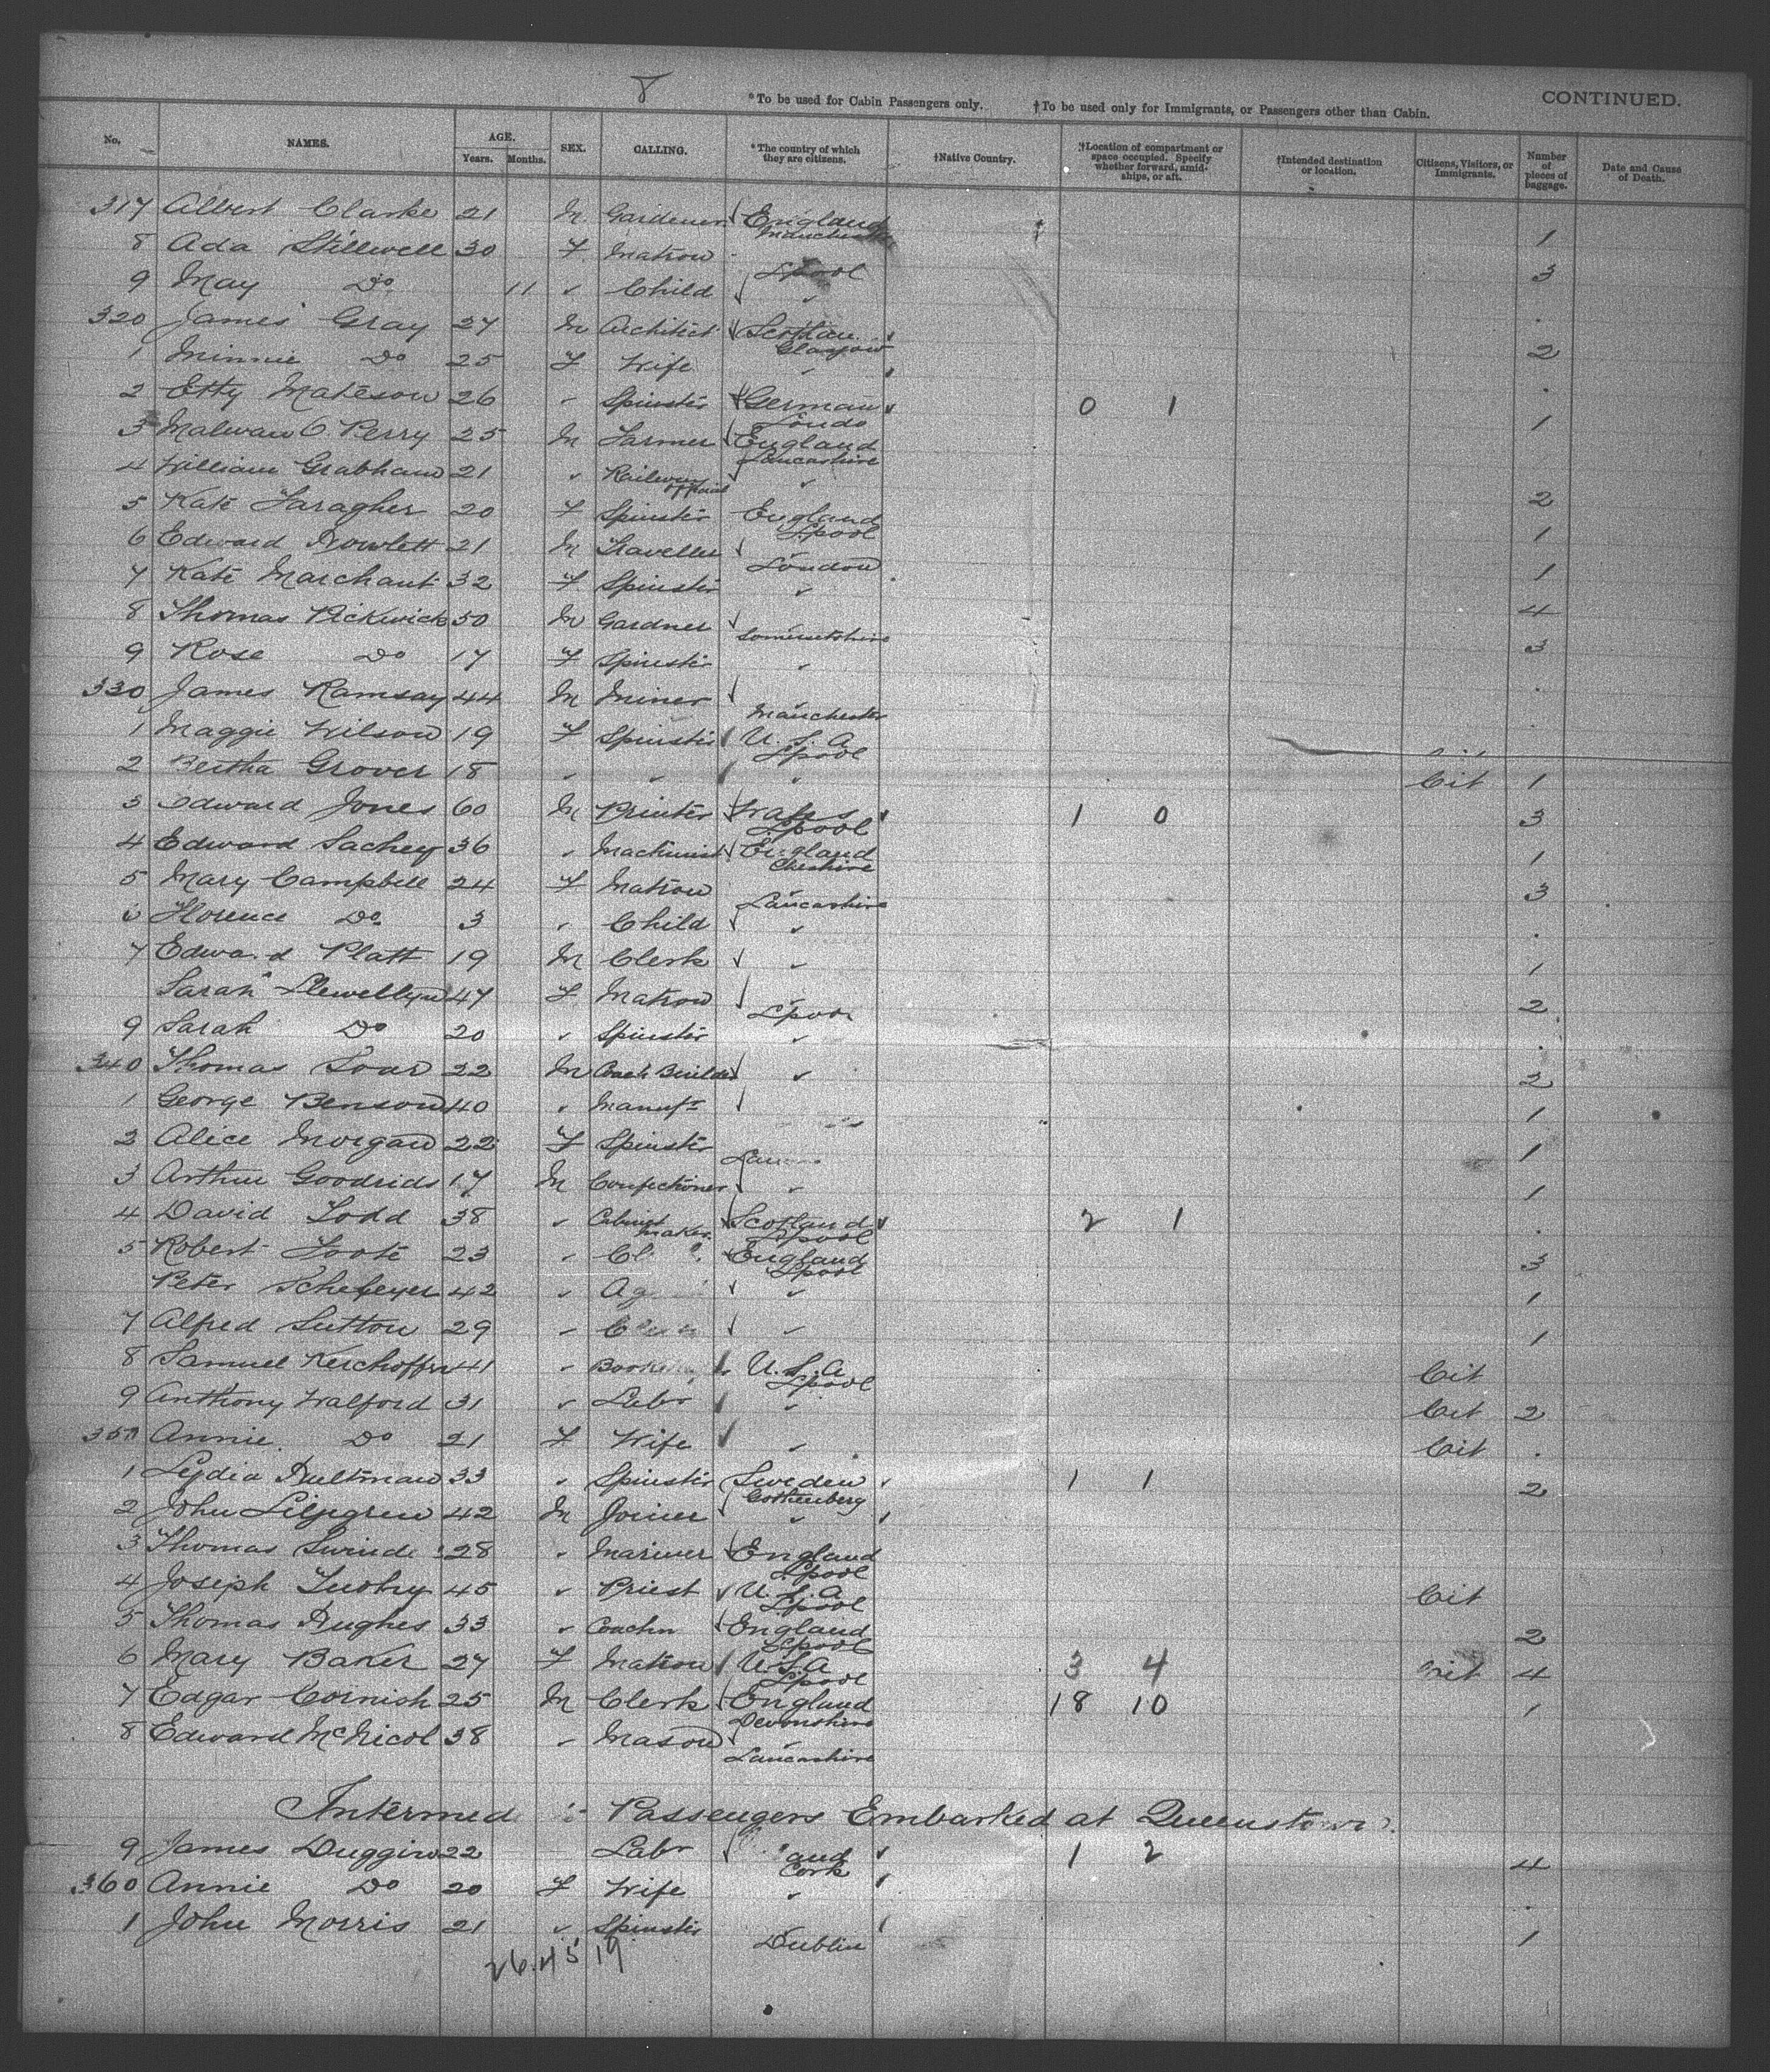 8
*To be used for Cabin Passengers only. †To be used only for Immigrants, or Passengers other than Cabin. CONTINUED.
No. NAMES. AGE. Years. Months. SEX. CALLING. *The country of which they are citizens. †Native Country. †Location of compartment or space occupied. Specify whether forward, amidships, or aft. †Intended destination or location. Citizens, Visitors, or Immigrants. Number of pieces of baggage. Date and Cause of Death.
317 Albert Clarke 21 M Gardener England Manchester 1
8 Ada Stillwell 30 F Matron " Lpool 3
9 May Do 11 " Child "
320 James Gray 27 M Architect Glasgow 2
1 Minnie Do 25 F Wife "
2 Etty Mateson 26 " Spinster German 0 1 1
3 Perry 25 M Farmer England Lancashire
4 William Grabham 21 " Railway official " 2
5 Kate Faragher 20 F Spinster England Lpool 1
6 Edward Howlett 21 M Traveller " London 1
7 Kate Marchant 32 F Spinster " 4
8 Thomas Pickwick 50 M Gardner " Somersetshire 3
9 Rose Do 17 F Spinster "
330 James Ramsay 44 M Miner " Manchester
1 Maggie Wilson 19 F Spinster U.S.A Lpool
2 Bertha Grover 18 " " " Cit 1
3 Edward Jones 60 M Printer Wales Lpool 1 0 3
4 Edward Sachey 36 " Machinist England Cheshire 1
5 Mary Campbell 24 F Matron " Lancashire 3
6 Florence Do 3 " Child "
7 Edward Platt 19 M Clerk " 1
Sarah Llewellyn 47 F Matron " Lpool 2
9 Sarah Do 20 " Spinster "
340 Thomas 22 M Coach Builder " 2
1 George Benson 40 " Manufr 1
2 Alice Morgan 22 F Spinster 1
3 Arthur Goodrids 17 M Confectioner " 1
4 David Todd 38 " Cabinet maker Scotland Lpool 2 1
5 Robert Foote 23 " England Lpool 3
Peter 42 " " 1
7 Alfred Sutton 29 " " 1
8 Samuel Kerchoffer 41 " U.S.A Lpool Cit
9 Anthony Walford 31 " Labr " Cit 2
350 Annie Do 21 F Wife " Cit
1 Lydia Hultman 33 " Spinster Sweden Gothenberg 1 1 2
2 John Liljegren 42 M Joiner "
3 Thomas 28 " Mariner England Lpool
4 Joseph Tuohy 45 " Priest U.S.A Lpool Cit
5 Thomas Hughes 33 " Coachn England Lpool 2
6 Mary Baker 27 F Matron U.S.A Lpool 3 4 Cit 4
7 Edgar Cornish 25 M Clerk England Devonshire 18 10 1
8 Edward McNicol 38 " Mason " Lancashire
Passengers Embarked at Queenstown
9 James Duggin 22 Labr Cork 1 2 4
360 Annie Do 20 F Wife "
1 John Morris 21 " Spinster Dublin 1